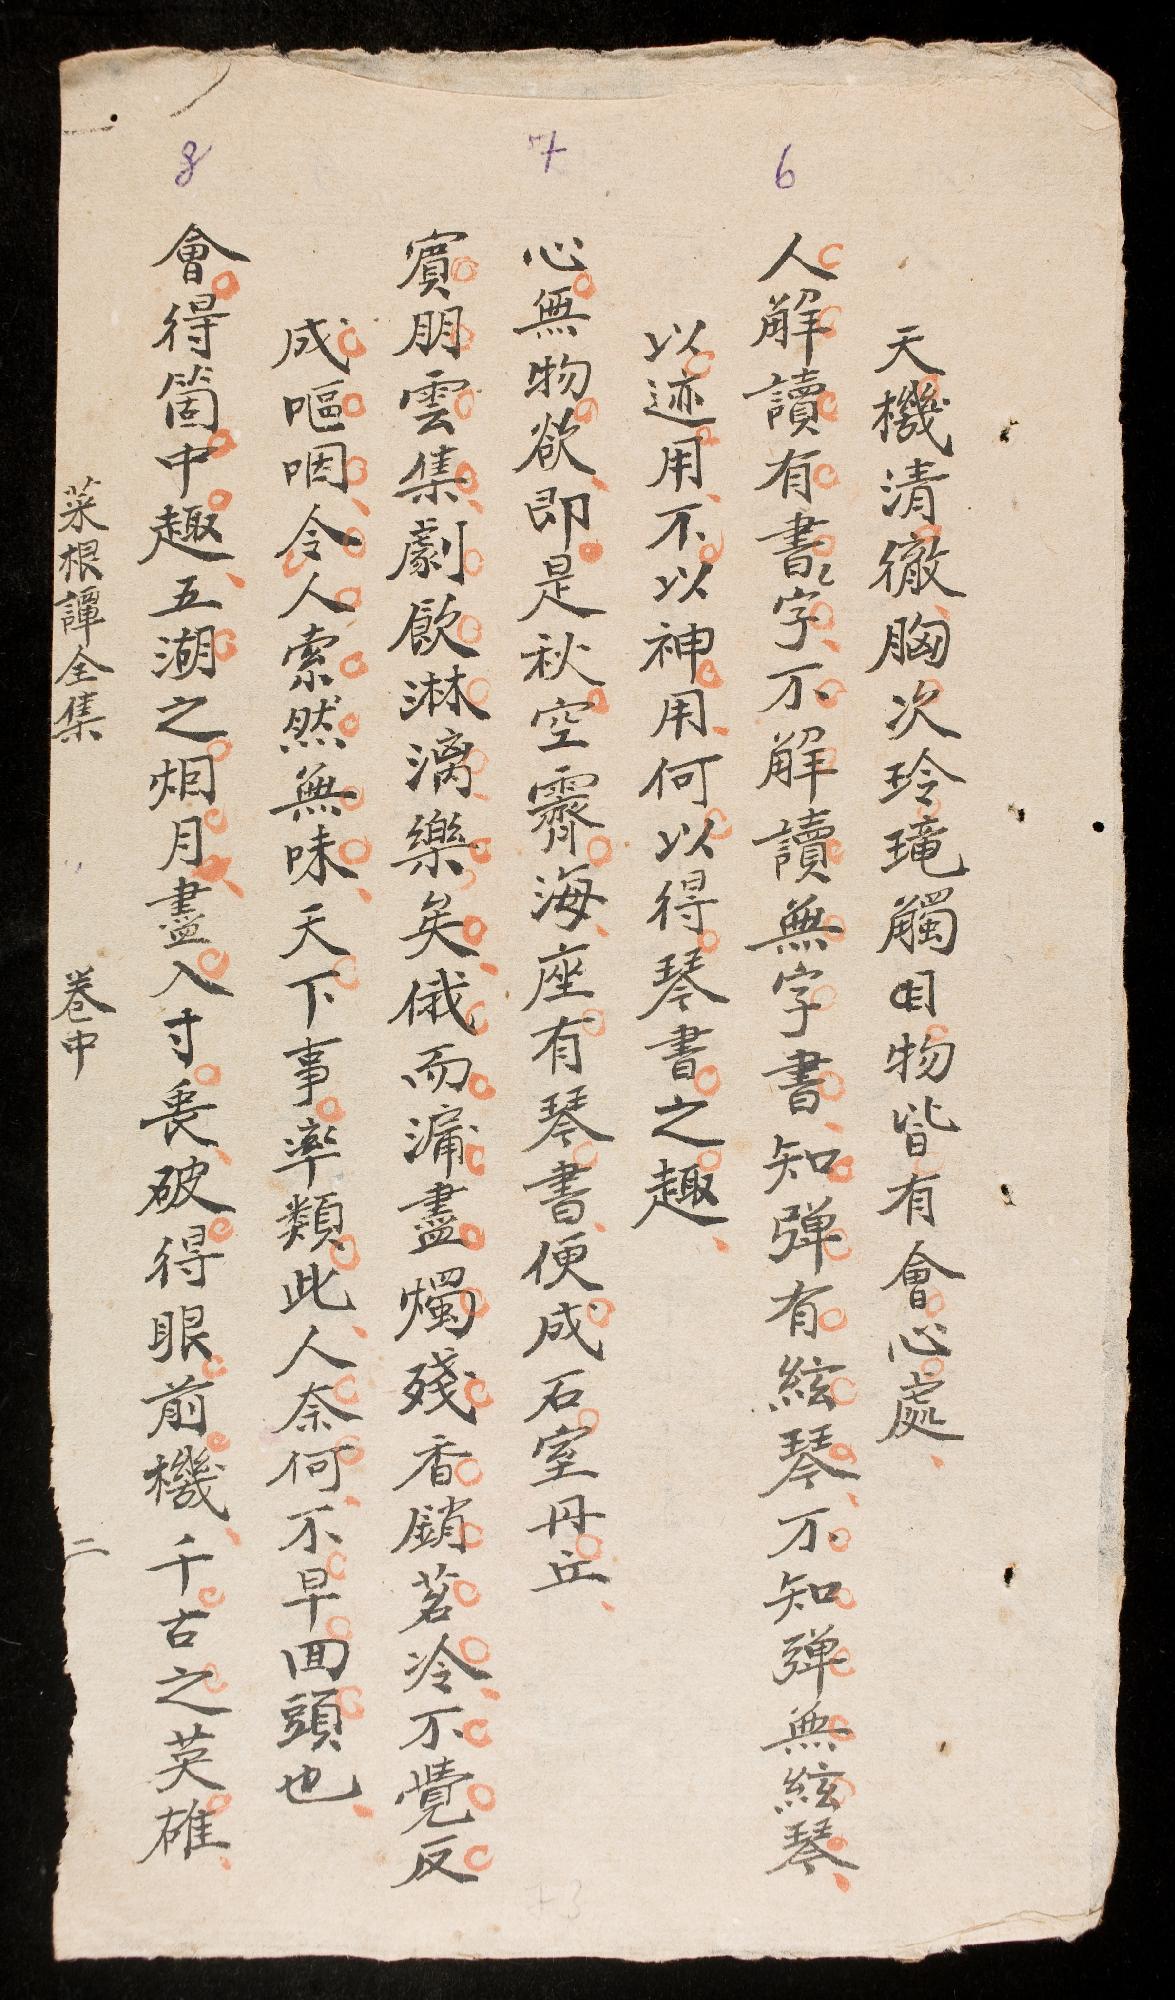 天機清徹胸次玲瓏觸目物皆有會心處
6
人解讀有書字不解讀無字書知弾有絃琴不知弾無絃琴
以迹用不以神用何以得琴書之趣
7
心無物欲即是秋空霽海座有琴書便成石室丹丘
賓朋雲集劇飲淋漓樂矣俄而漏盡燭殘香銷茗冷不覺反
成嘔咽令人索然無味天下事率類此人奈何不早回頭也
8
會得箇中趣五湖之烟月盡入寸裏破得眼前機千古之英雄
菜根譚全集 卷中 二